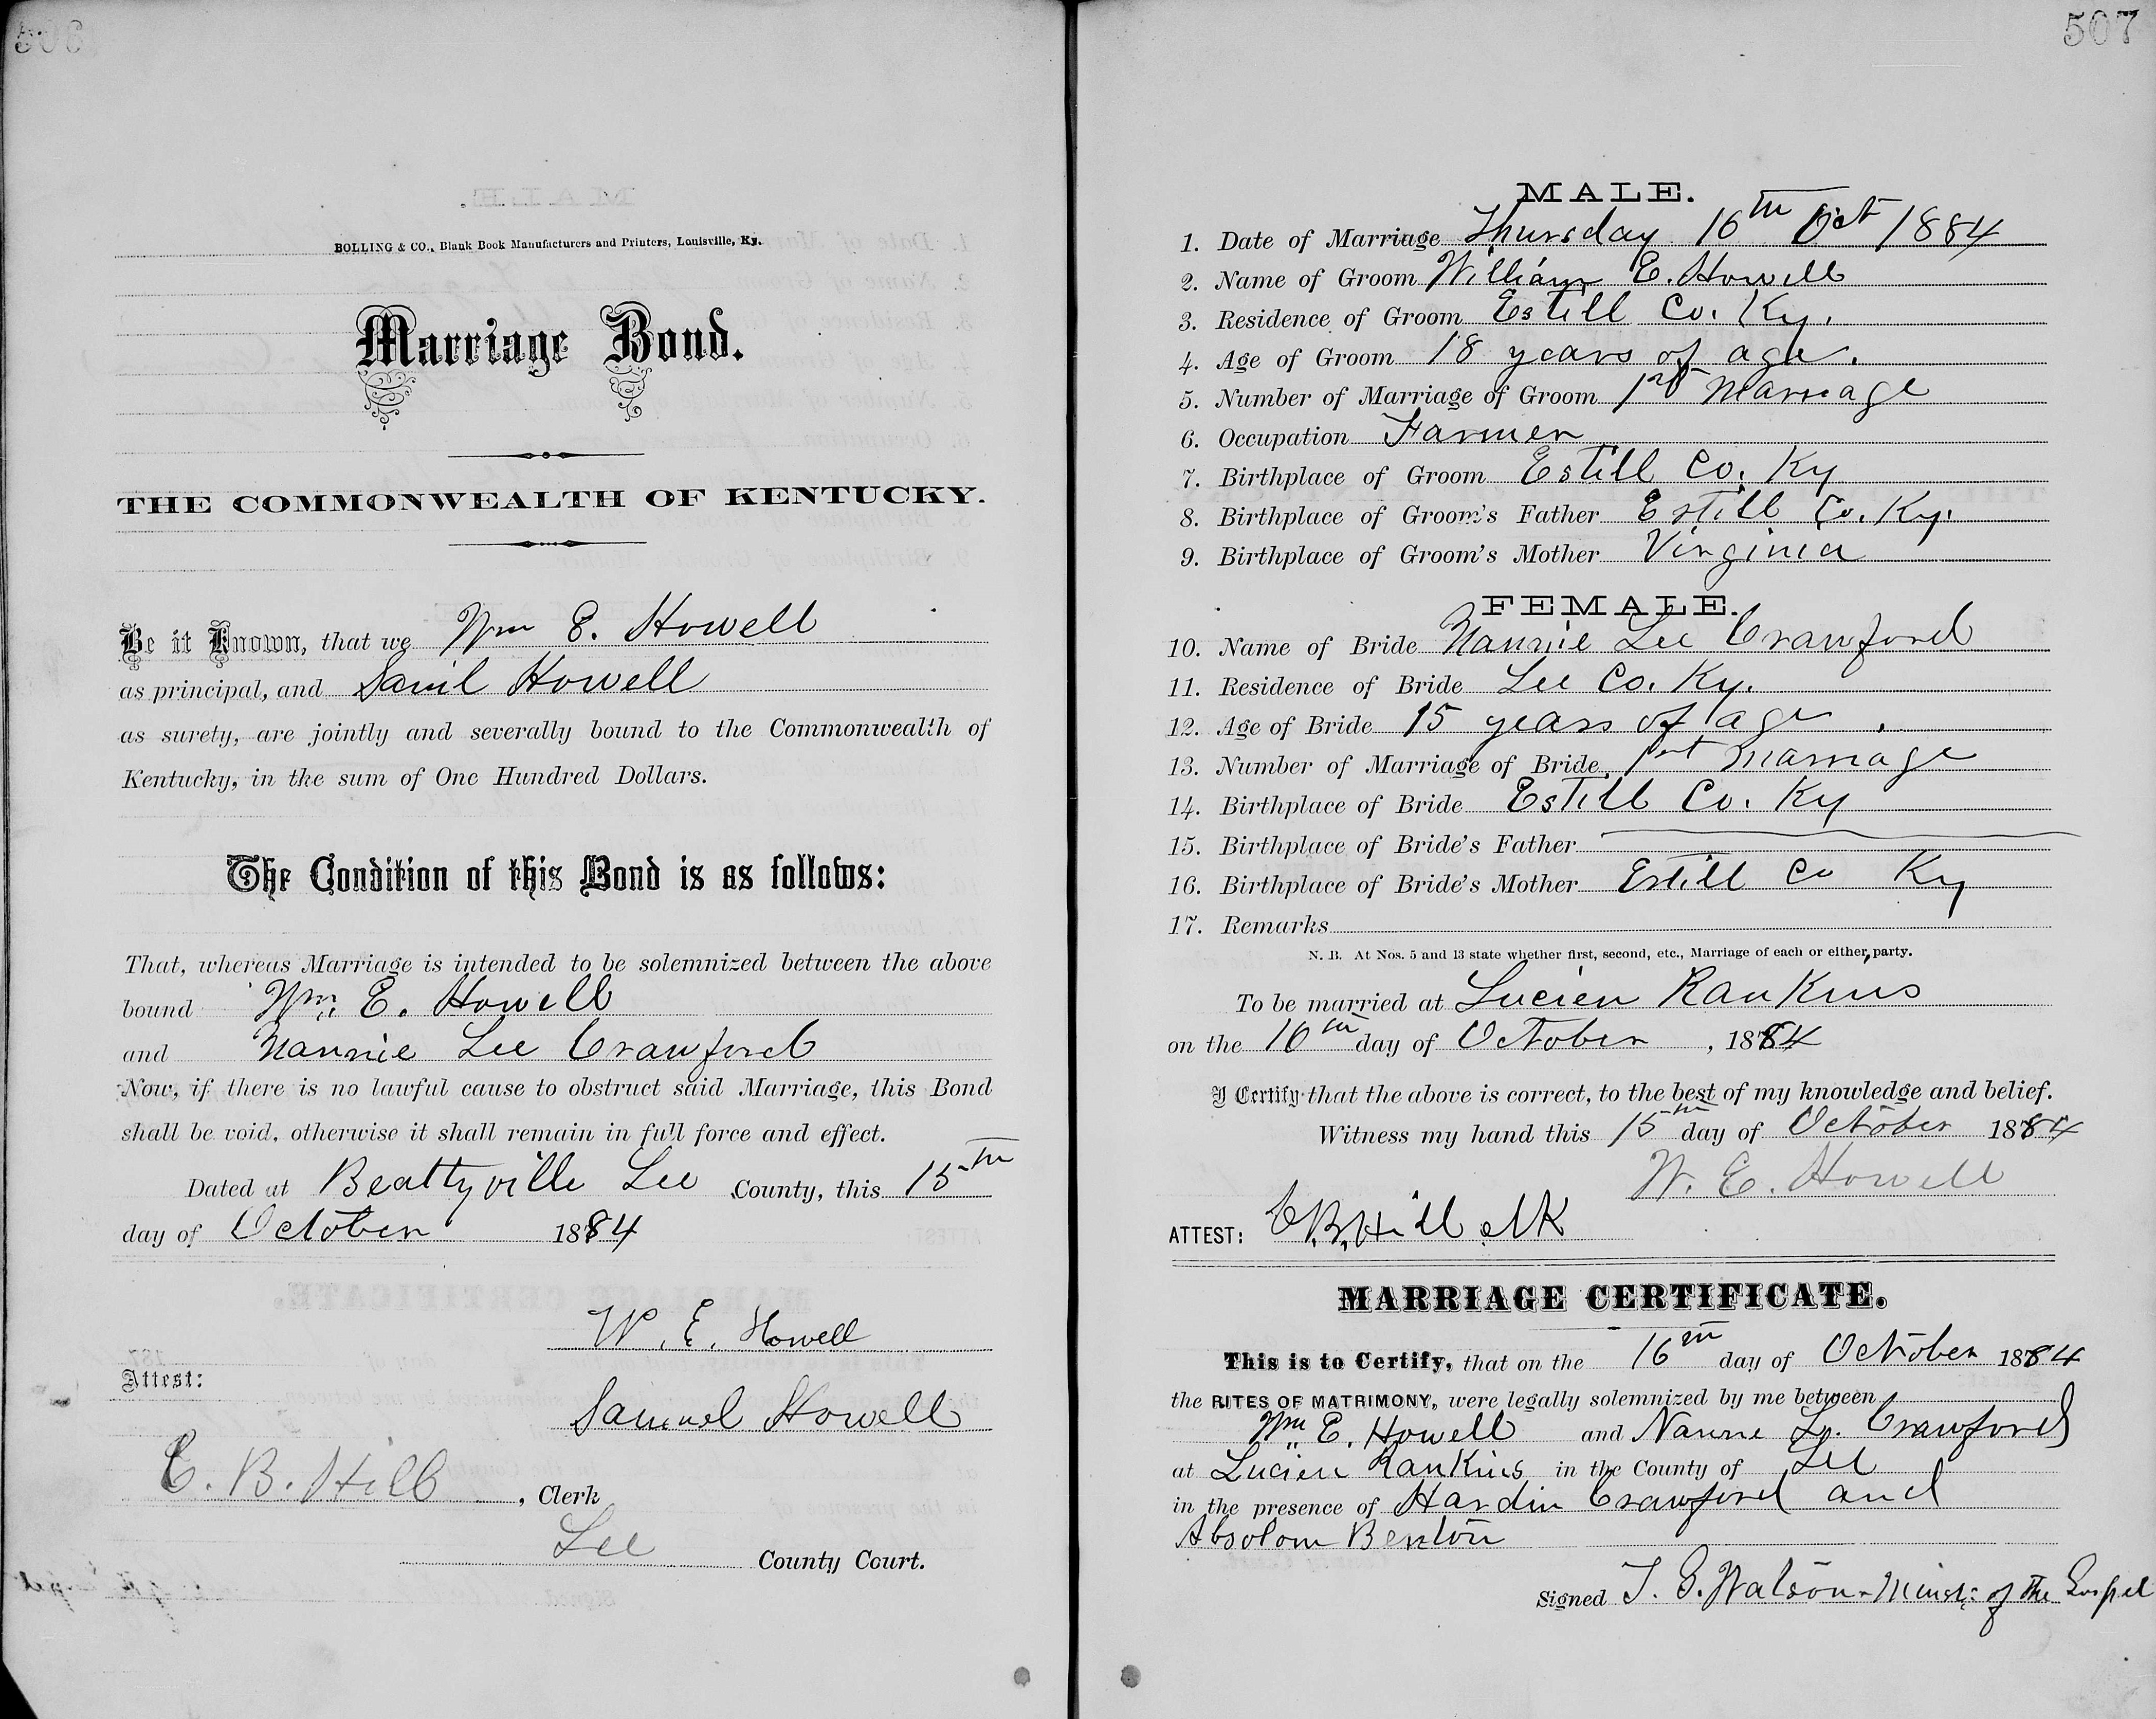 506
BOLLING & CO., Blank Book Manufacturers and Printers, Louisville, Ky.
Marriage Bond.
THE COMMONWEALTH OF KENTUCKY.
Be it Known, that we Wm E. Howell
as principal, and Saml Howell
as surety, are jointly and severally bound to the Commonwealth of
Kentucky, in the sum of One Hundred Dollars.
The Condition of this Bond is as follows:
That, whereas Marriage is intended to be solemnized between the above
bound Wm. E. Howell
and Nannie Lee Crawford
Now, if there is no lawful cause to obstruct said Marriage, this Bond
shall be void, otherwise it shall remain in full force and effect.
Dated at Beattyville Lee County, this 15th
day of October 1884
W. E. Howell
Attest:
Samuel Howell
C. B. Hill, Clerk
Lee County Court.
507
MALE.
1. Date of Marriage Thursday 16th Oct 1884
2. Name of Groom William E. Howell
3. Residence of Groom Estill Co. Ky.
4. Age of Groom 18 years of age.
5. Number of Marriage of Groom 1st Marriage
6. Occupation Farmer
7. Birthplace of Groom Estill Co. Ky
8. Birthplace of Groom's Father Estill Co. Ky.
9. Birthplace of Groom's Mother Virginia
FEMALE.
10. Name of Bride Nannie Lee Crawford
11. Residence of Bride Lee Co. Ky.
12. Age of Bride 15 years of age.
13. Number of Marriage of Bride 1st Marriage
14. Birthplace of Bride Estill Co. Ky
15. Birthplace of Bride's Father
16. Birthplace of Bride's Mother Estill Co Ky
17. Remarks
N. B. At Nos. 5 and 13 state whether first, second, etc., Marriage of each or either party.
To be married at Lucien Rankins
on the 16th day of October, 1884
I Certify that the above is correct, to the best of my knowledge and belief.
Witness my hand this 15th day of October 1884
W. E. Howell
ATTEST: C. B. Hill clk
MARRIAGE CERTIFICATE.
This is to Certify, that on the 16th day of October 1884
the RITES OF MATRIMONY, were legally solemnized by me between
Wm E. Howell and Nannie L. Crawford
at Lucien Rankins in the County of Lee
in the presence of Hardin Crawford and
Absolom Benton
Signed J. G. Watson Minstr of the Gospel